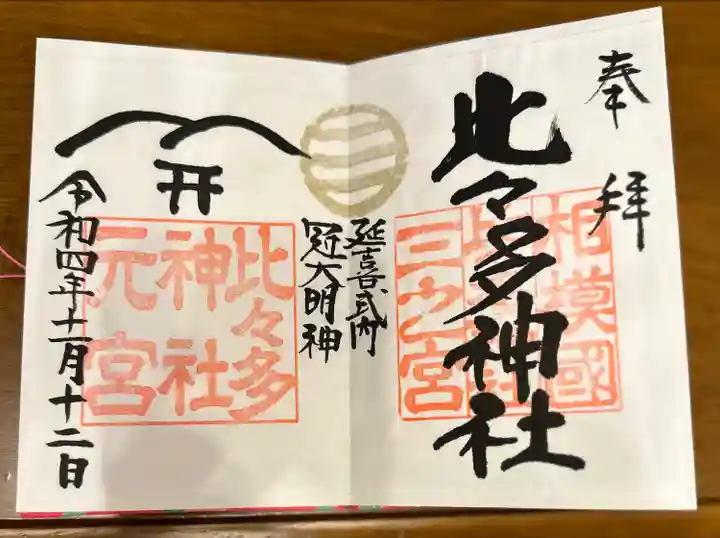 奉拝
比々多神社
相模國
三之宮
延喜式内
冠大明神
比々多
神社
元宮
令和四年十一月十二日